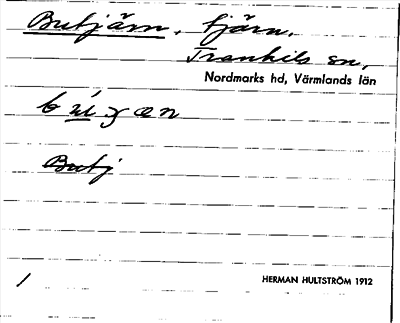 Butjärn, tjärn.
Trankils sn,
Nordmarks hd, Värmlands län
Butj
/
HERMAN HULTSTRÖM 1912